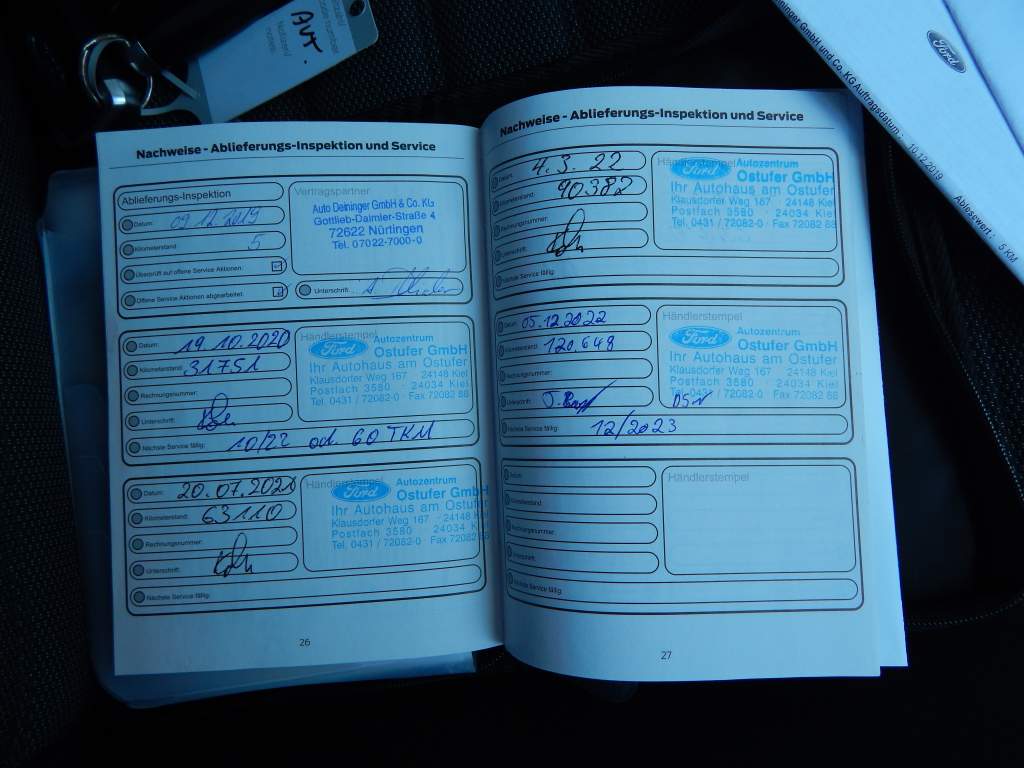 AVT.
Ford
Deininger GmbH und Co. KG Auftragsdatum : 10.12.2019 Ablesswert : 5 KM
Nachweise - Ablieferungs-Inspektion und Service
Ablieferungs-Inspektion
Datum: 09.12.2019
Kilometerstand: 5
Überprüft auf offene Service Aktionen:
Offene Service Aktionen abgearbeitet:
Vertragspartner
Auto Deininger GmbH & Co. KG
Gottlieb-Daimler-Straße 4
72622 Nürtingen
Tel. 07022-7000-0
Unterschrift:
Datum: 19.10.2020
Kilometerstand: 31751
Rechnungsnummer:
Unterschrift:
Nächste Service fällig: 10/22 od. 60 TKM
Händlerstempel
Ford Autozentrum
Ostufer GmbH
Ihr Autohaus am Ostufer
Klausdorfer Weg 167 · 24148 Kiel
Postfach 3580 · 24034 Kiel
Tel. 0431 / 72082-0 · Fax 72082 88
Datum: 20.07.2021
Kilometerstand: 63110
Rechnungsnummer:
Unterschrift:
Nächste Service fällig:
Händlerstempel
Ford Autozentrum
Ostufer GmbH
Ihr Autohaus am Ostufer
Klausdorfer Weg 167 · 24148 Kiel
Postfach 3580 · 24034 Kiel
Tel. 0431 / 72082-0 · Fax 72082 88
26
Nachweise - Ablieferungs-Inspektion und Service
Datum: 4.3.22
Kilometerstand: 90382
Rechnungsnummer:
Unterschrift:
Nächste Service fällig:
Händlerstempel
Ford Autozentrum
Ostufer GmbH
Ihr Autohaus am Ostufer
Klausdorfer Weg 167 · 24148 Kiel
Postfach 3580 · 24034 Kiel
Tel. 0431 / 72082-0 · Fax 72082 88
Datum: 05.12.2022
Kilometerstand: 120.648
Rechnungsnummer:
Unterschrift:
Nächste Service fällig: 12/2023
Händlerstempel
Ford Autozentrum
Ostufer GmbH
Ihr Autohaus am Ostufer
Klausdorfer Weg 167 · 24148 Kiel
Postfach 3580 · 24034 Kiel
Tel. 0431 / 72082-0 · Fax 72082 88
Datum:
Kilometerstand:
Rechnungsnummer:
Unterschrift:
Nächste Service fällig:
Händlerstempel
27